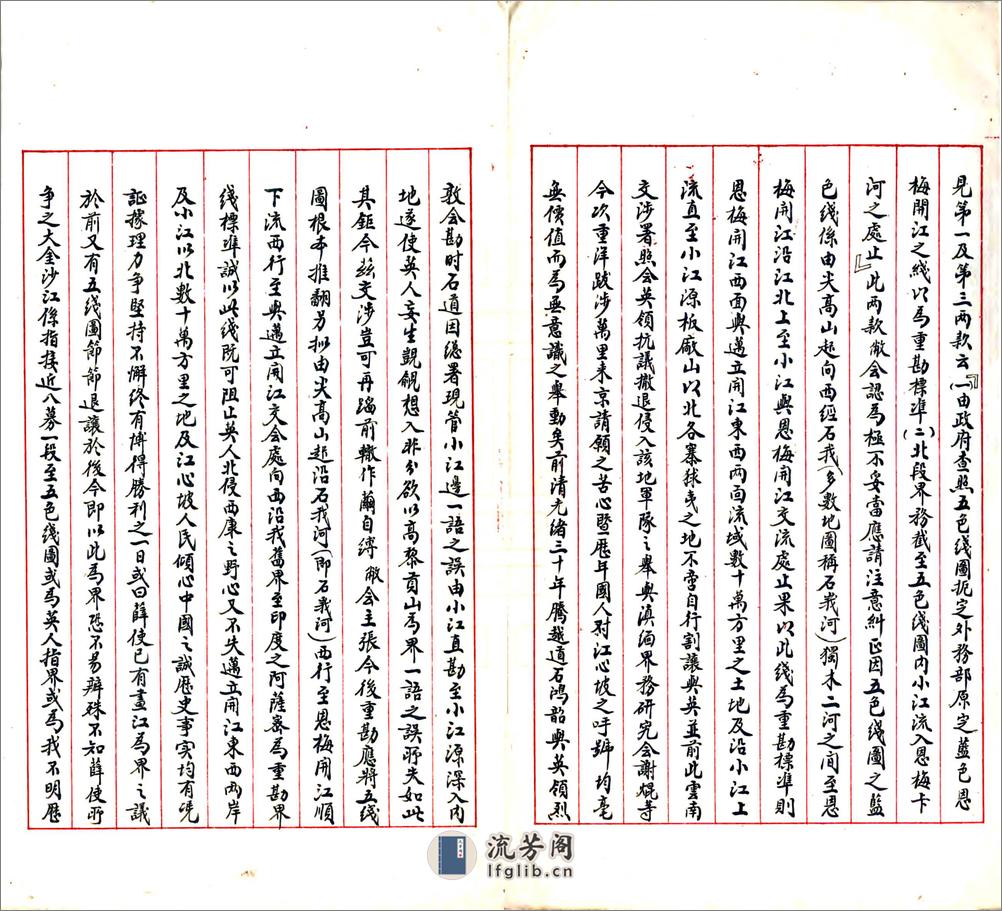 見第一及第三兩款云『（一）由政府查照五色綫圖扼定外務部原定藍色恩
梅開江之綫以為重勘標準（二）北段界務截至五色綫圖内小江流入恩梅卡
河之處止』此兩款敝会認為極不妥當應請注意糾正因五色綫圖之藍
色綫係由尖高山起向西經石我（多數地圖稱石莪河）獨木二河之间至恩
梅開江沿江北上至小江與恩梅開江交流處止果以此綫為重勘標準則
恩梅開江西面與邁立開江東西兩面流域數十萬方里之土地及沿小江上
流直至小江源板廠山以北各寨狻夷之地不啻自行割讓與英並前此雲南
交涉署照会英領抗議撤退侵入該地軍隊之舉與滇緬界務研究会謝焜等
今次重洋跋涉萬里来京請領之苦心暨歷年國人对江心坡之呼號均毫
無價值而為無意識之舉動矣前清光緒三十年騰越道石鴻韶與英領烈
敦会勘时石道因總署現管小江邊一語之誤由小江直勘至小江源深入内
地遂使英人妄生覬覦想入非分欲以高黎貢山為界一語之誤所失如此
其鉅今兹交涉豈可再蹈前轍作繭自縛敝会主張今後重勘應將五线
圖根本推翻另拟由尖高山起沿石我河（即石莪河）西行至恩梅開江順
下流西行至與邁立開江交会處向西沿我舊界至印度之阿薩密為重勘界
綫標準誠以此綫既可阻止英人北侵西康之野心又不失邁立開江東西兩岸
及小江以北數十萬方里之地及江心坡人民傾心中國之誠歷史事实均有凭
証據理力争堅持不懈终有博得勝利之一日或曰薛使已有畫江為界之議
於前又有五线圖節節退讓於後今即以此為界恐不易辦殊不知薛使所
争之大金沙江係指接近八募一段至五色綫圖或為英人指界或為我不明歷
流芳阁
lfglib.cn